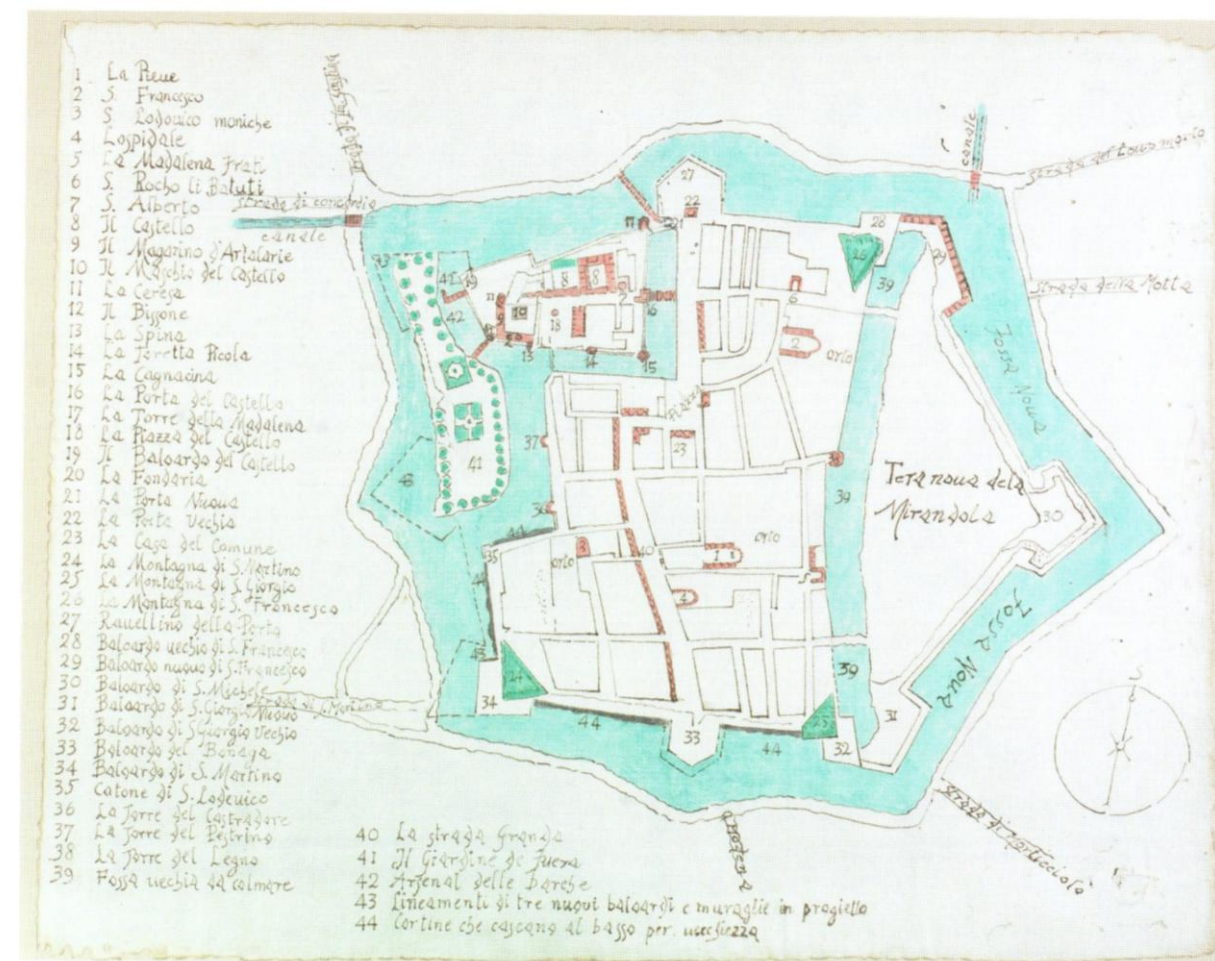 1 La Pieue
2 S. Francesco
3 S. Lodouico moniche
4 Lospidale
5 La Madalena Frati
6 S. Rocho li Batuti
7 S. Alberto
8 Il Castello
9 Il Magazino d'Artalarie
10 Il Maschio del Castello
11 La Ceresa
12 Il Bissone
13 La Spina
14 La Toretta Picola
15 La Cagnacina
16 La Porta del Castello
17 La Torre della Madalena
18 La Piazza del Castello
19 Il Baloardo del Castello
20 La Fondaria
21 La Porta Nuoua
22 La Porta Vechia
23 La Casa del Comune
24 La Montagna di S. Martino
25 La Montagna di S. Giorgio
26 La Montagna di S. Francesco
27 Rauellino della Porta
28 Baloardo uechio di S. Francesco
29 Baloardo nuouo di S. Francesco
30 Baloardo di S. Michele
31 Baloardo di S. Giorgio Nuouo
32 Baloardo di S Giorgio Vechio
33 Baloardo del Bonaga
34 Baloardo di S. Martino
35 Catone di S. Lodeuico
36 La Torre del Castradore
37 La Torre del Pistrino
38 La Torre del Legno
39 Fossa uechia da colmare
40 La strada Granda
41 Il Giardine de fuera
42 Arsenal delle barche
43 Lineamenti di tre nuovi baloardi e muraglie in progietto
44 Cortine che cascano al basso per. uecchiezza
strada di concordia
canale
canale
strada della Motta
strada di S. Martino
Fossa Noua
Fossa Noua
Tera noua dela
Mirandola
Piazza
orto
orto
orto
27
22
28
26
29
39
39
39
30
31
32
25
33
44
44
44
34
24
35
36
37
41
42
43
23
40
2
1
6
8
8
10
13
14
15
16
17
18
19
S